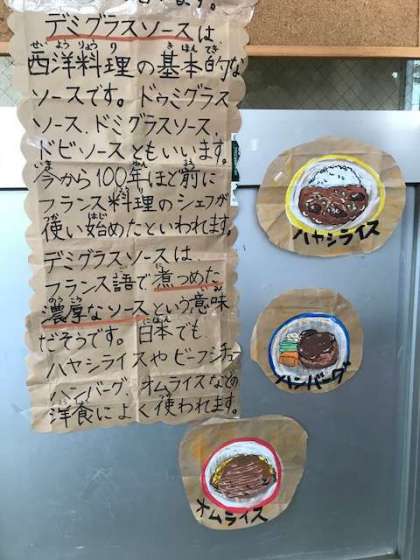 ます。
デミグラスソースは
西洋料理の基本的な
ソースです。ドゥミグラス
ソース、ドミグラスソース、
ドビソースともいいます。
今から100年ほど前に
フランス料理のシェフが
使い始めたといわれます。
デミグラスソースは
フランス語で煮つめた
濃厚なソースという意味
だそうです。日本でも
ハヤシライスやビーフシチュー
ハンバーグ、オムライスなどの
洋食によく使われます。
ハヤシライス
ハンバーグ
オムライス